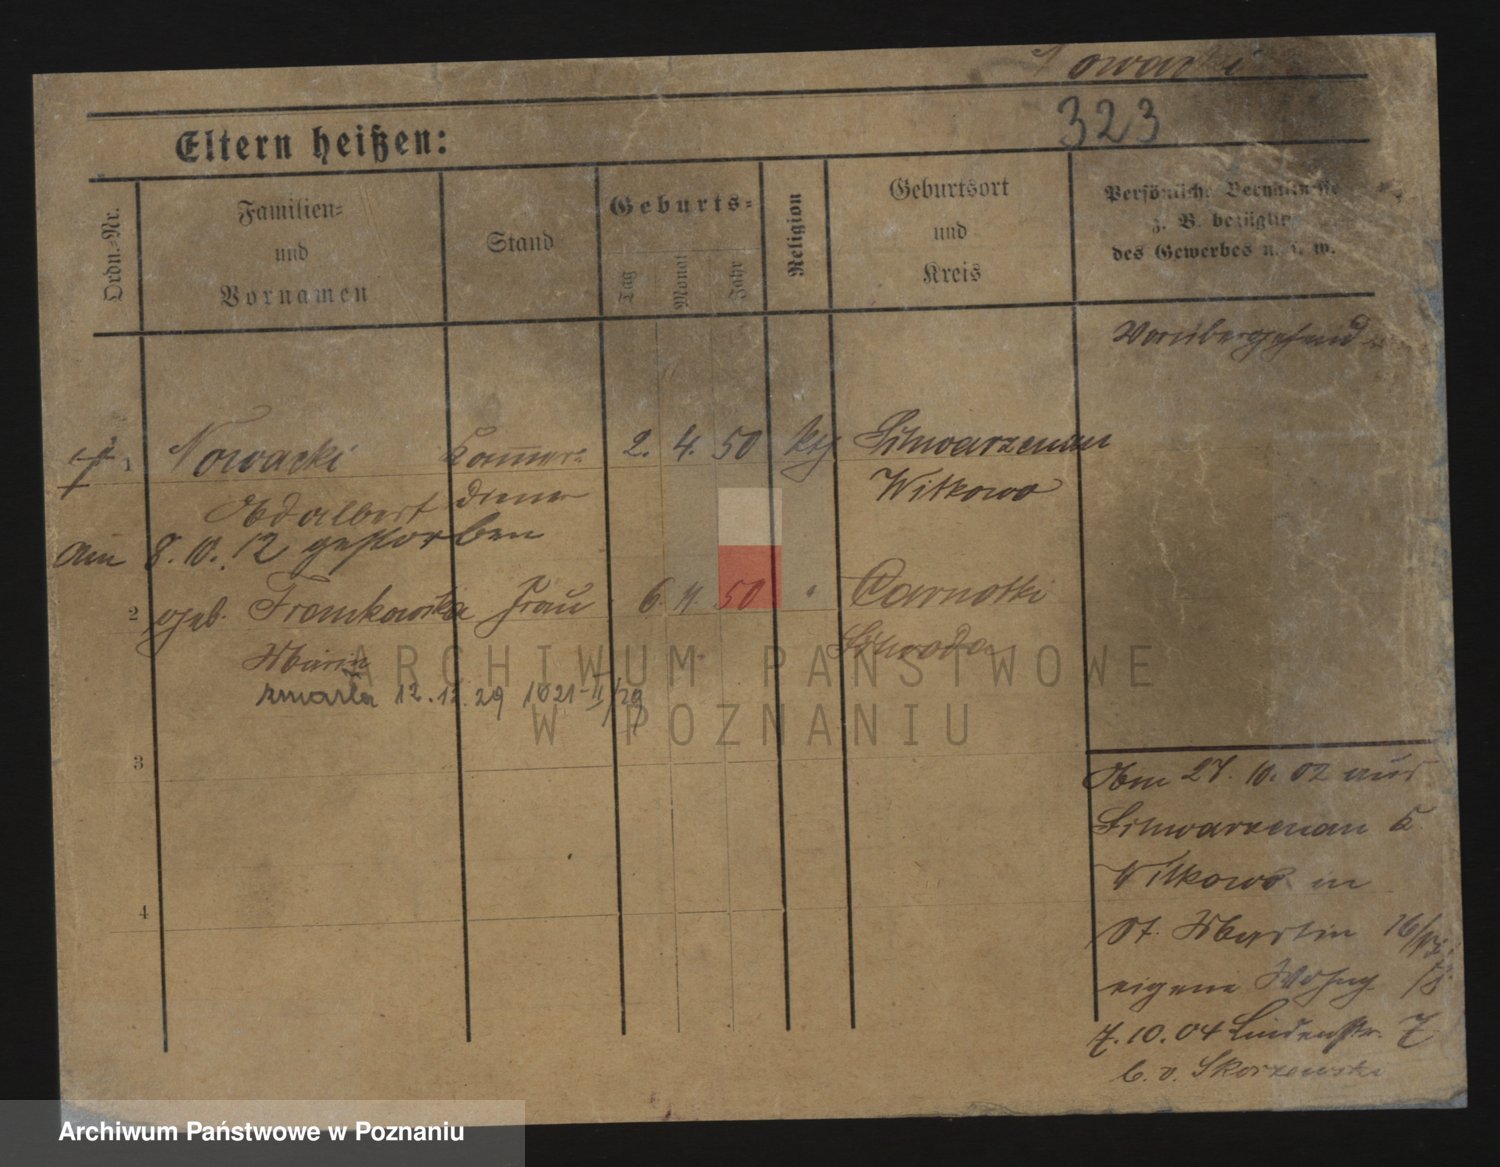 Nowacki
323
Eltern heißen:
Ordn.-Nr.
Familien-
und
Vornamen
Stand
Geburts-
Tag
Monat
Jahr
Religion
Geburtsort
und
Kreis
Persönliche Verhältnisse
z. B. bezüglich
des Gewerbes u. s. w.
Vorübergehend
1 Nowacki Kammer- 2. 4. 50 kth Schwarzenau
Adalbert diener Witkowo
am 8. 10. 12 gestorben
2 geb. Fromkowska Frau 6 50 " Czarnotki
Maria Schroda
zmarła 12.12.29 1621-II/29
ARCHIWUM PAŃSTWOWE
W POZNANIU
3
4
Am 27. 10. 02 aus
Schwarzenau K
Witkowo in
St. Martin 26
eigene Wohng
7. 10. 04 Lindenstr. 7
b. v. Skorzewski
Archiwum Państwowe w Poznaniu